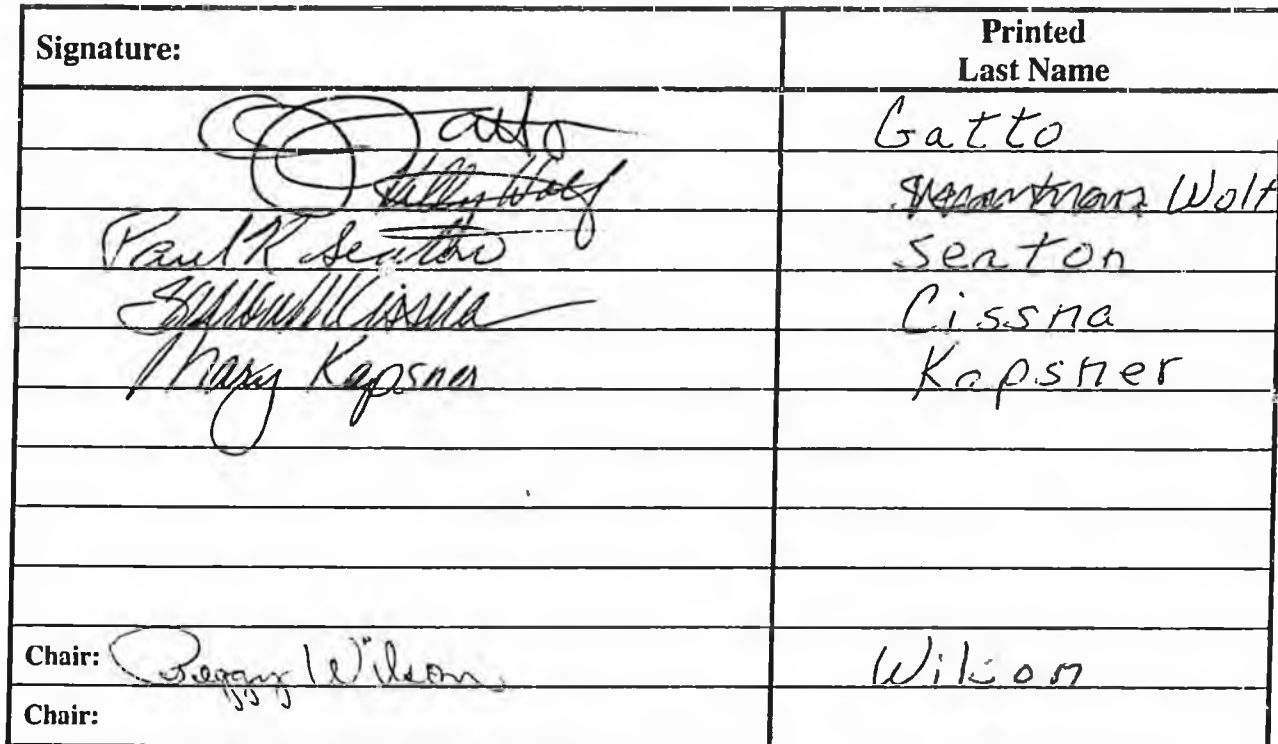 Signature: Printed Last Name
Gatto Gatto
Wolf Wolf
Paul K Seaton Seaton
Cissna Cissna
Mary Kapsner Kapsner
Chair: Peggy Wilson Wilson
Chair: